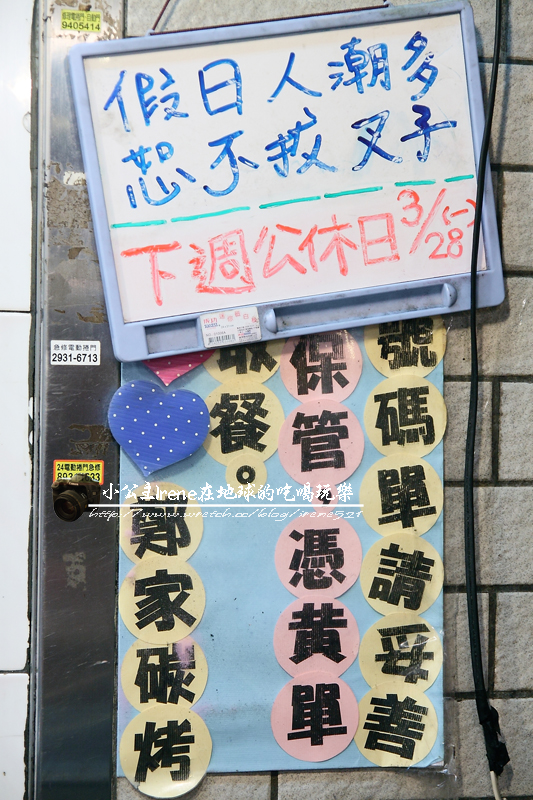 修理電捲門・自動門
9405414
假日人潮多
恕不拔叉子
下週公休日3/28(一)
急修電動捲門
2931-6713
24電動捲門急修
號碼單請妥善
保管憑黃單
取餐。
鄭家碳烤
小公主Irene在地球的吃喝玩樂
http://www.wretch.cc/blog/irene521